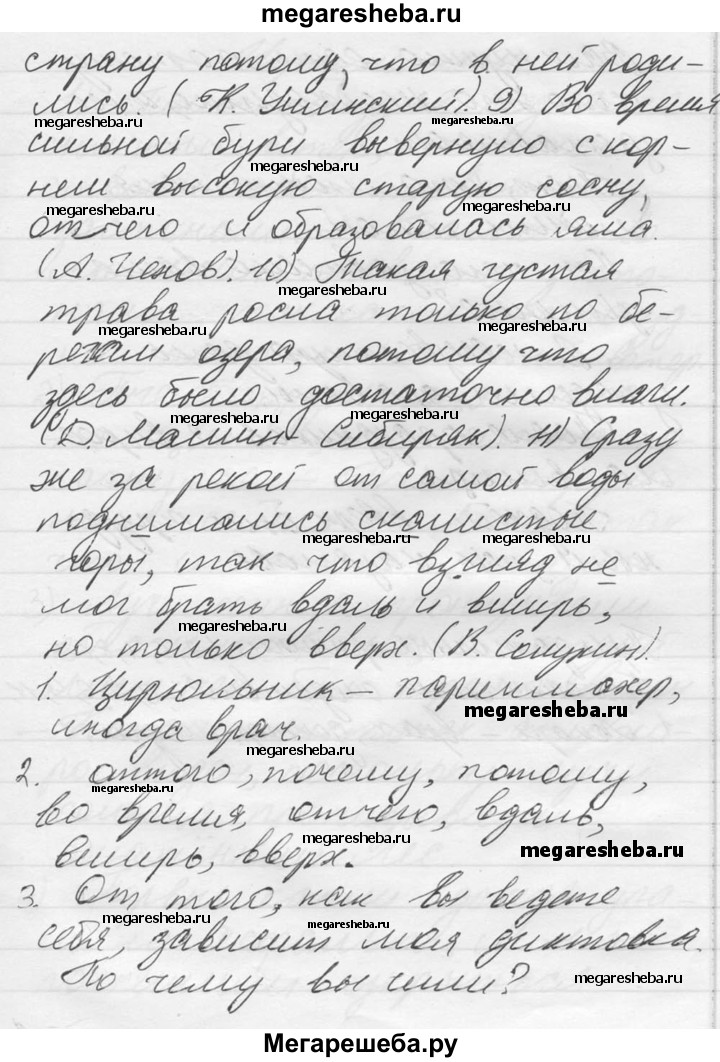 megaresheba.ru
страну потому, что в ней роди-
лись. (К. Ушинский). 9) Во время
megaresheba.ru megaresheba.ru
сильной бури вывернуло с кор-
megaresheba.ru
нем высокую старую сосну,
megaresheba.ru megaresheba.ru
отчего и образовалась яма.
(А. Чехов). 10) Такая густая
megaresheba.ru
трава росла только по бе-
megaresheba.ru megaresheba.ru
регам озера, потому что
здесь было достаточно влаги.
megaresheba.ru megaresheba.ru
(Д. Мамин-Сибиряк). 11) Сразу
же за рекой от самой воды
поднимались скалистые
megaresheba.ru
горы, так что взгляд не
мог брать вдаль и вширь,
megaresheba.ru
но только вверх. (В. Солухин).
1. Цирюльник – парикмахер,
megaresheba.ru
иногда врач.
megaresheba.ru
2. оттого, почему, потому,
megaresheba.ru
во время, отчего, вдаль,
megaresheba.ru
вширь, вверх.
megaresheba.ru
3. От того, как вы ведете
megaresheba.ru megaresheba.ru
себя, зависит моя диктовка.
По чему вы шли?
megaresheba.ru megaresheba.ru
Мегарешеба.ру